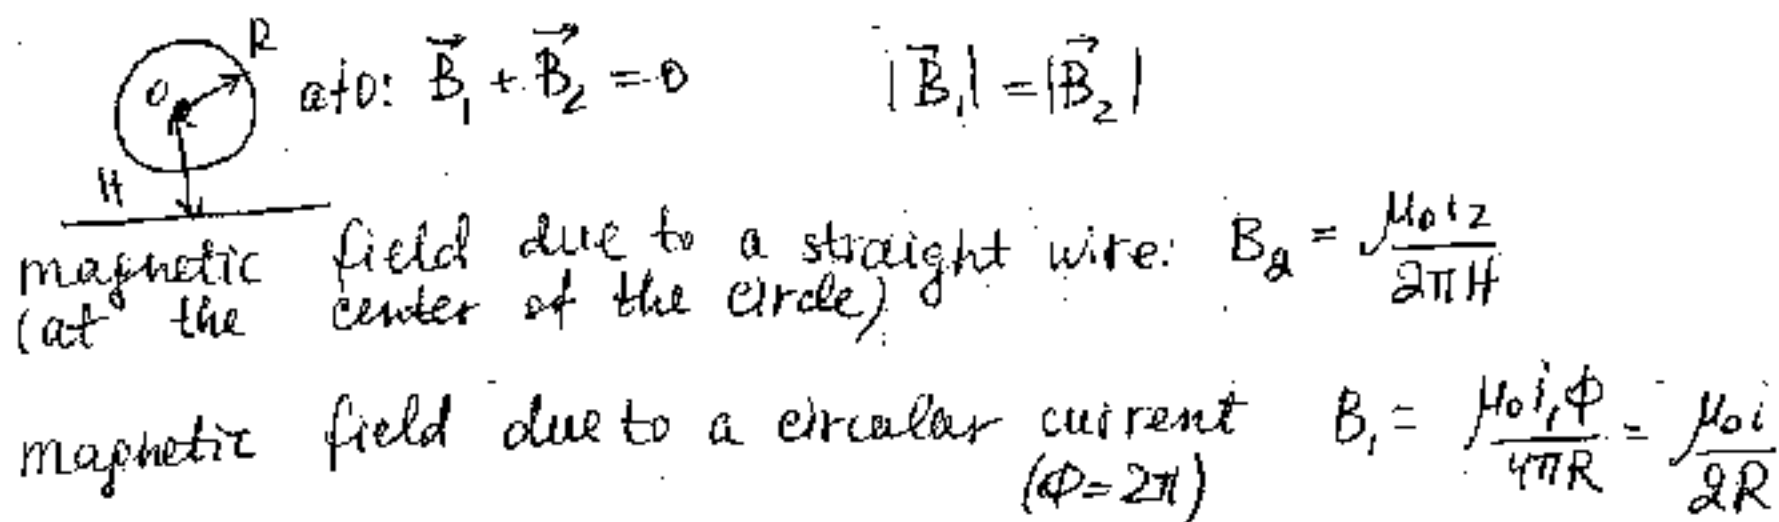 R
O at O: B⃗₁ + B⃗₂ = 0 |B⃗₁| = |B⃗₂|
H
magnetic field due to a straight wire: B₂ = μ₀i₂/2πH
(at the center of the circle)
magnetic field due to a circular current B₁ = μ₀i₁Φ/4πR = μ₀i/2R
(Φ=2π)